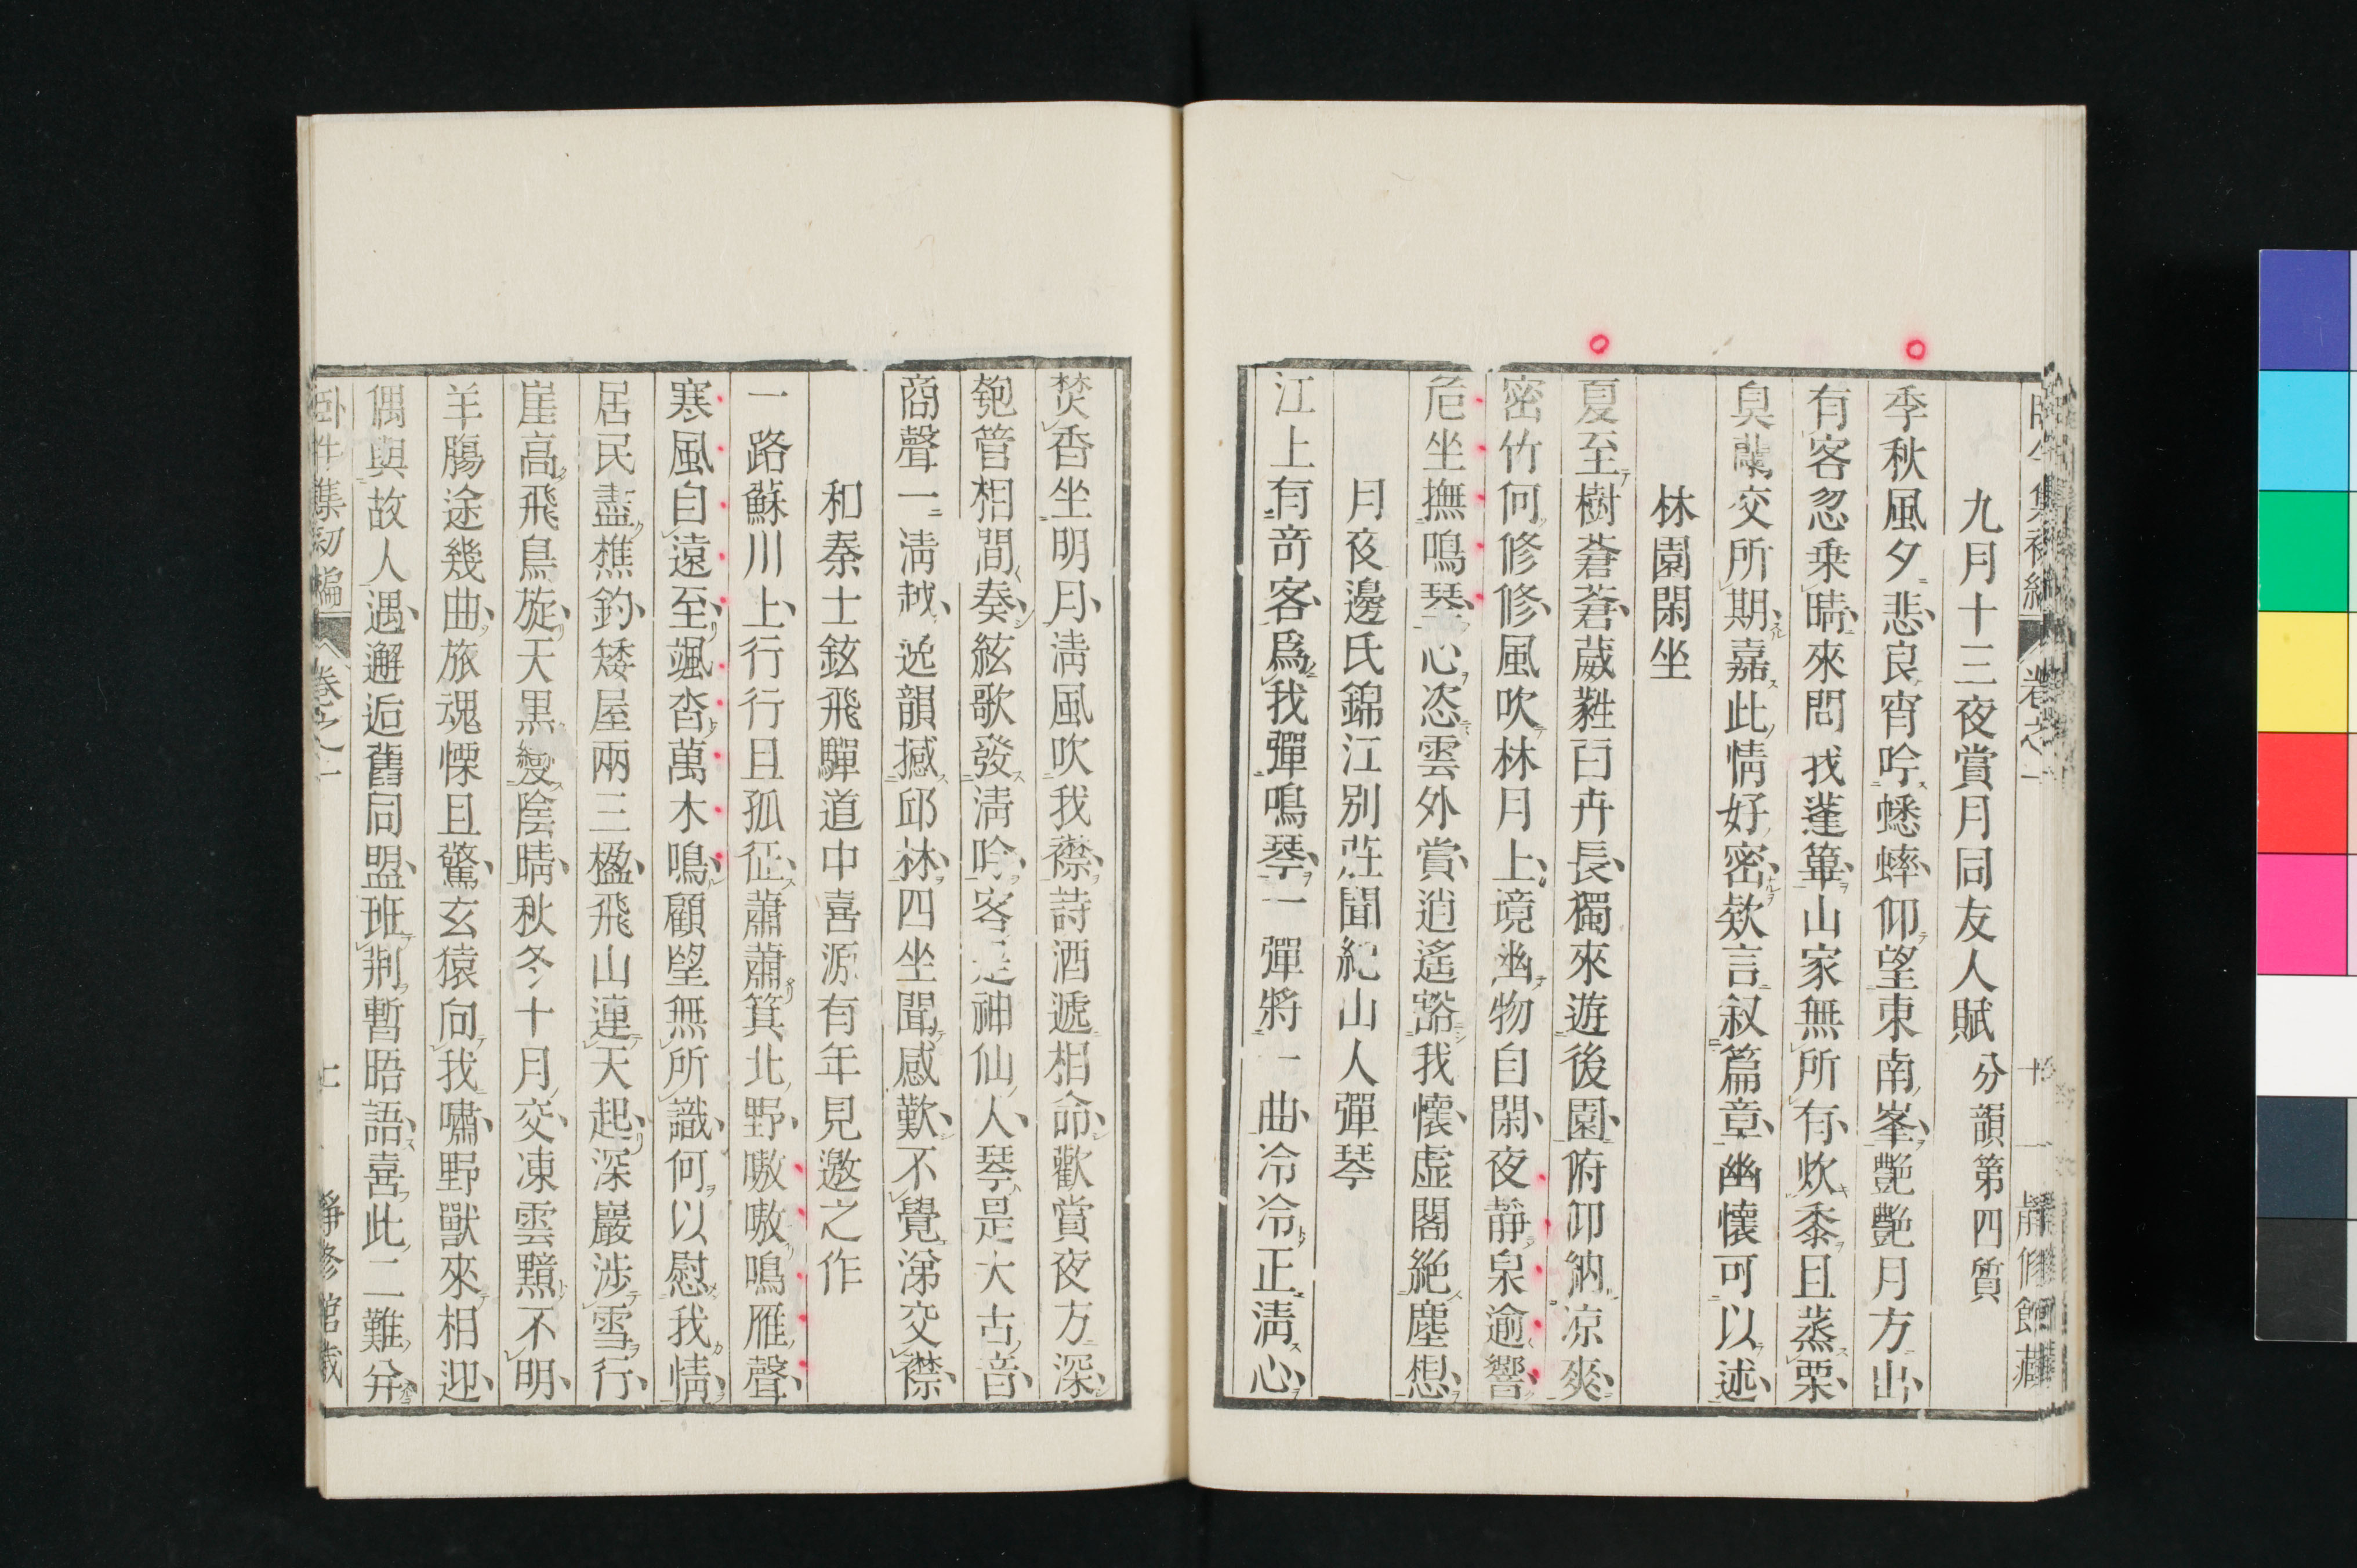 九月十三夜賞月同友人賦 分韻第四質
季秋風夕悲良宵吟蟋蟀仰望東南峯艷艷月方出
有客忽乗晴來問我蓬篳山家無所有炊黍且蒸栗
臭蘭交所期嘉此情好密欸言叙篇章幽懷可以述
林園閑坐
夏至樹蒼蒼葳蕤百卉長獨來遊後園俯仰納凉爽
密竹何修修風吹林月上境幽物自閑夜靜泉逾響
危坐撫鳴琴心恣雲外賞逍遙豁我懷虚閣絶塵想
月夜邊氏錦江別莊聞紀山人彈琴
江上有奇客爲我彈鳴琴一彈將一曲冷冷正淸心
焚香坐明月淸風吹我襟詩酒遞相命歡賞夜方深
匏管相間奏絃歌發淸吟客是神仙人琴是大古音
商聲一淸越逸韻撼邱林四坐聞感歎不覺涕交襟
和秦士鉉飛驒道中喜源有年見邀之作
一路蘇川上行行且孤征蕭蕭箕北野嗷嗷鳴雁聲
寒風自遠至颯杳萬木鳴顧望無所識何以慰我情
居民盡樵釣矮屋兩三楹飛山連天起深巖渉雪行
崖高飛鳥旋天黒變陰晴秋冬十月交凍雲黯不明
羊腸途幾曲旅魂慄且驚玄猿向我嘯野獸來相迎
偶與故人遇邂逅舊同盟班荆暫晤語喜此二難并
臥牛集初編 卷之一 七 靜修館藏